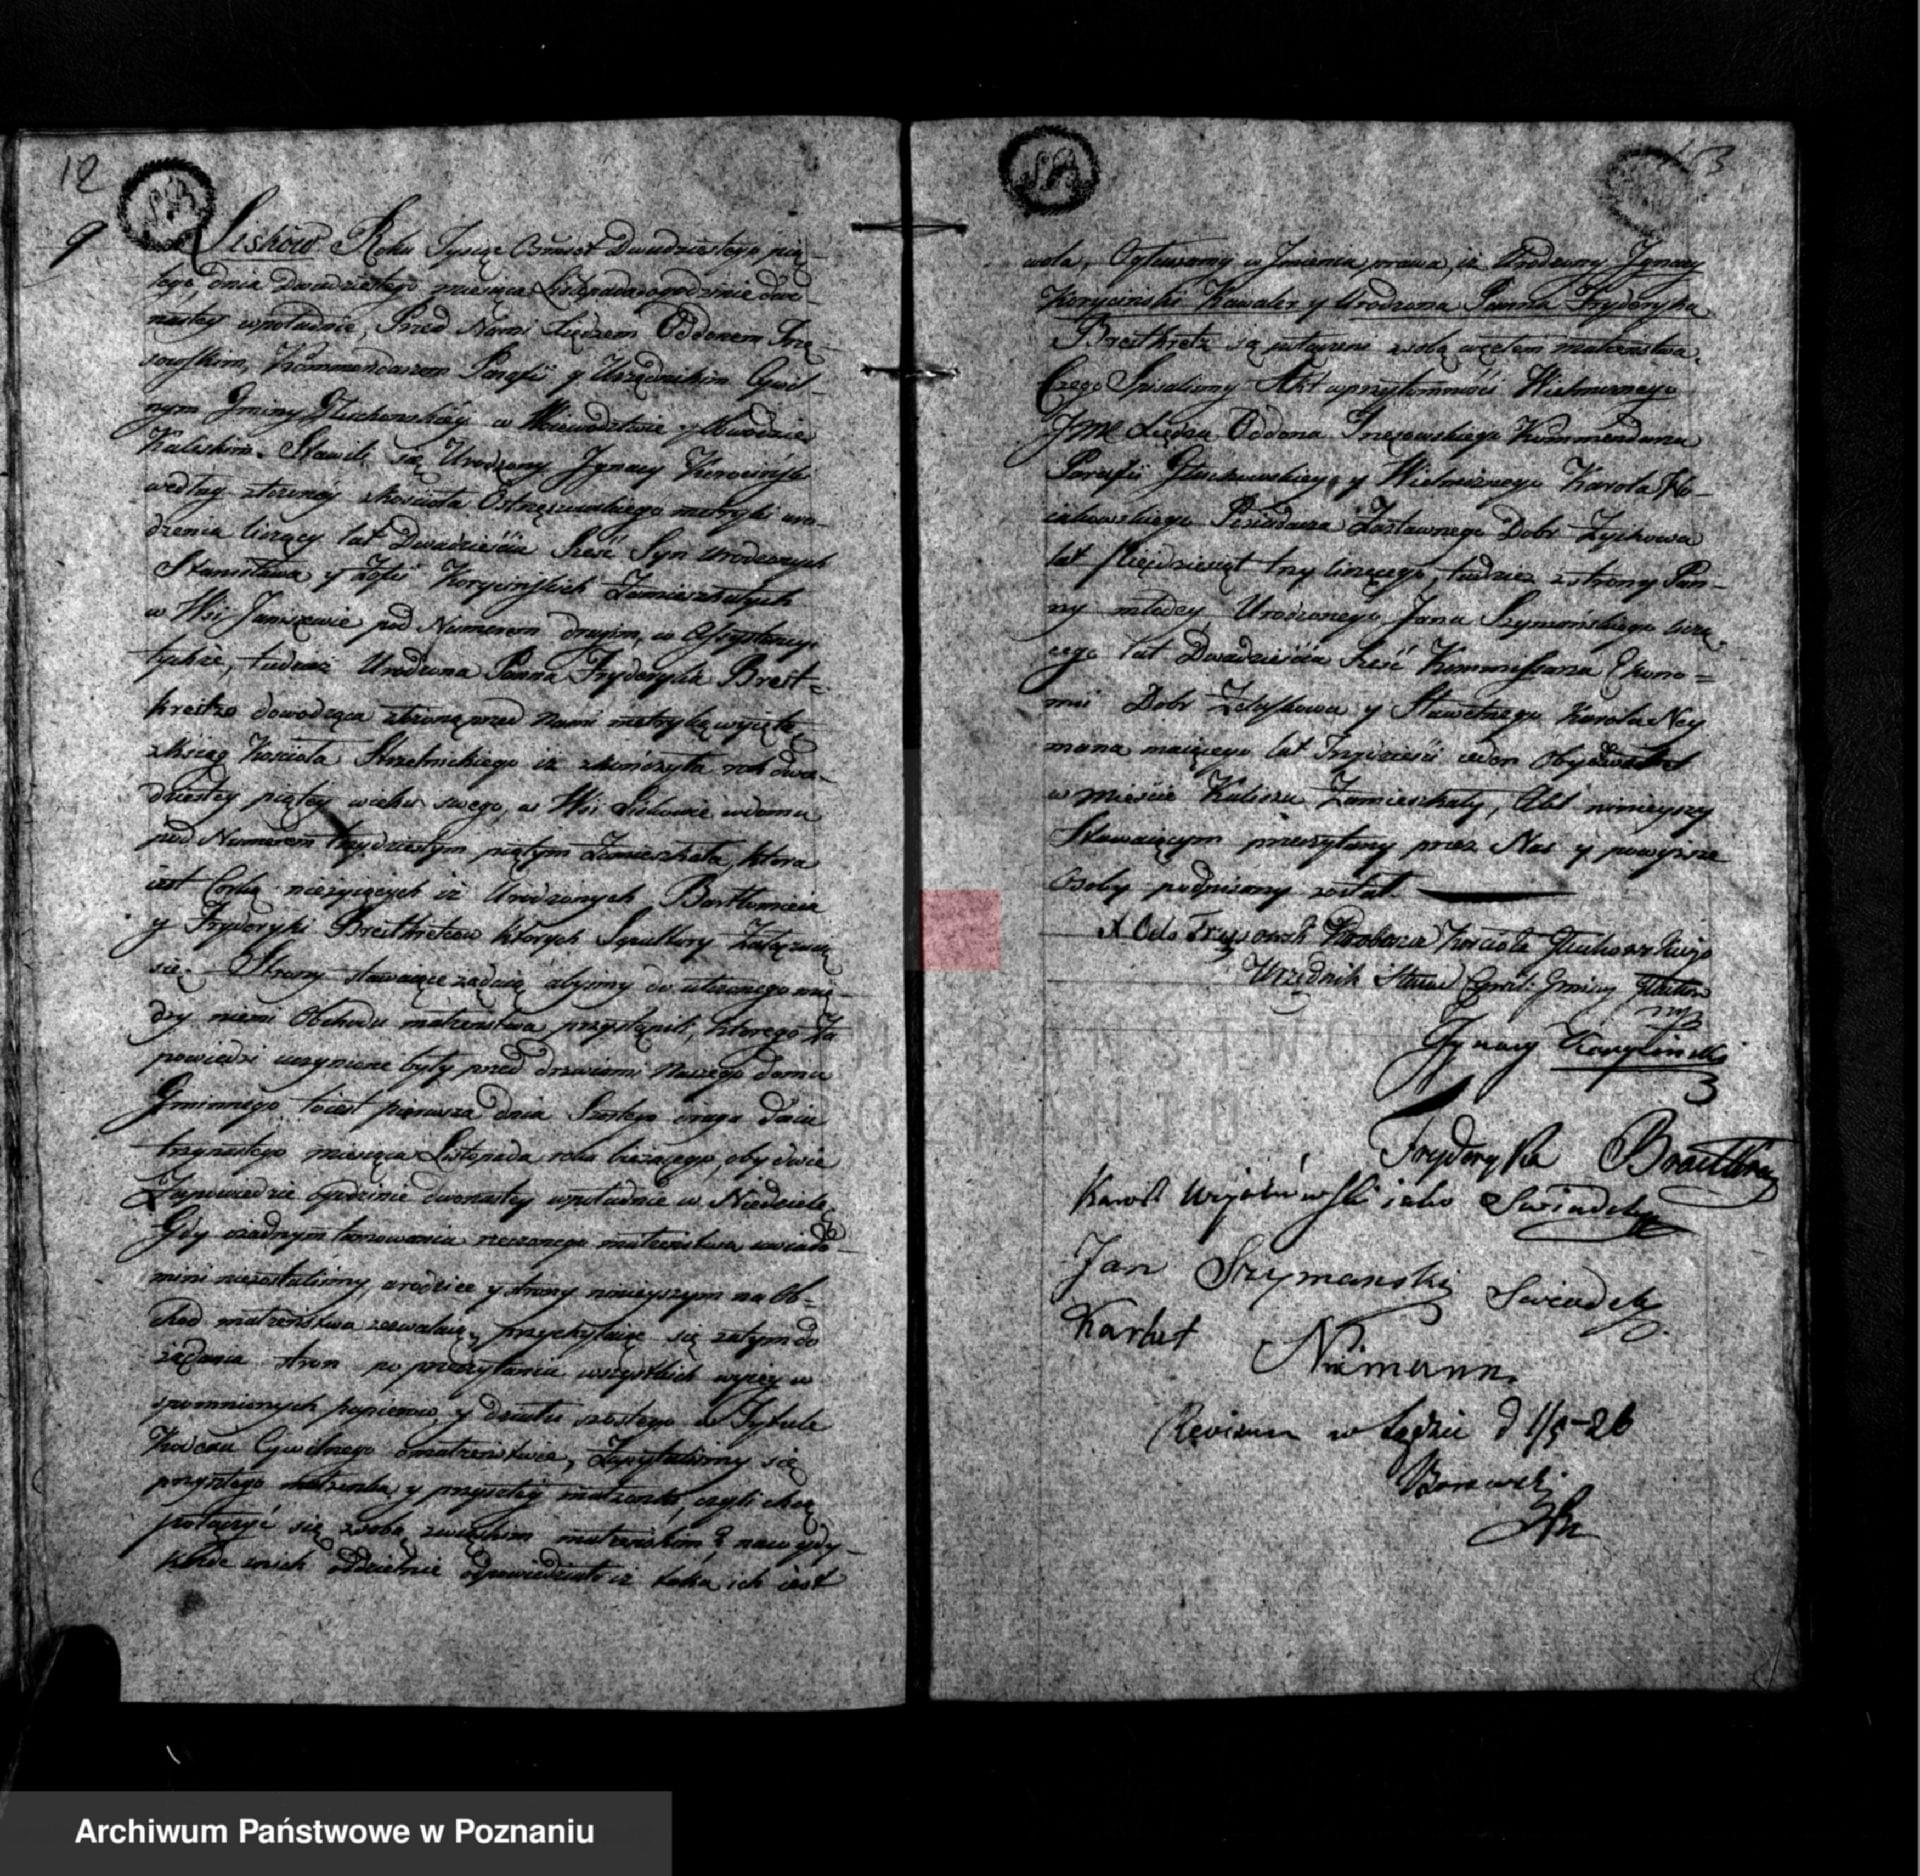 12
9
Liskow Roku Tysiąc Ośmset Dwudziestego pią-
tego, dnia Dwudziestego miesiąca Listopada o godzinie dwu-
nastey w południe, Przed Nami Xiędzem Oddonem Trzę-
sowskim, Kommendarzem Parafii y Urzędnikiem Cywil-
nym Gminy Głuchowskiey w Woiewodztwie y Obwodzie
Kaliskim. Stawili się Urodzony Jgnacy Korociński
według złożonéy z Kościoła Ostrzeszowskiego metryki uro-
dzenia liczący lat Dwadzieścia Sześć Syn Urodzonych
Stanisława y Zofii Korycińskich Zamieszkałych
w Wsi Janiszewie pod Numerem drugim, w Assystencyi
tychże, tudzież Urodzona Panna Fryderyka Breit-
kreitzo dowodząca złożoną przed Nami metryką wyciętą
z Ksiąg Kościoła Strzelnickiego iż skończyła rok dwa-
dziesty piąty wieku swego, w Wsi Liskowie w domu
pod Numerem trzydziestym piątym Zamieszkała, ktora
iest Corką nieżyiących iż Urodzonych Bartłomieia
y Fryderyki Breitkretców których Sepultury Załączaią
się. Strony stawaiące żądaią abyśmy do ułożonego mię-
dzy niemi Obchodu małżeństwa przystąpili, ktorego Za
powiedzi uczynione były przed drzwiami Naszego domu
Gminnego to iest pierwsza dnia Szóstego druga dnia
trzynastego miesiąca Listopada roku bieżącego, oby dwie
Zapowiedzie o godzinie dwunastey w południe w Niedziele
Gdy o żadnym tamowaniu rzeczonego małżeństwa uwiado-
mini niezostaliśmy, a rodzice y strony ninieyszym na Ob-
chod małżeństwa zezwalaią, przychylaiąc się zatym do
żądania stron po przeczytaniu wszystkich wyżey w
spomnionych papierow, y działu szóstego w Tytule
Kodexu Cywilnego o małżeństwie, Zapytaliśmy się
przyszłego małżonka y przyszłey małżonki, czyli chcą
połączyć się z sobą związkiem małżeńskim? na co gdy
każde z nich oddzielnie odpowiedziało iż taka ich iest
13
wola, Ogłaszamy w Jmieniu prawa, iż Urodzony Jgnacy
Koryciński Kawaler y Urodzona Panna Fryderyka
Breitkretz są połączeni z sobą węzłem małżeństwa.
Czego Spisaliśmy Akt w przytomności Wielmożnego
Jmć Xiędza Oddona Trzesowskiego Kommendarza
Parafii Głuchowskiego y Wielmożnego Karola
Posiadacza Zastawnego Dobr Zychowa
lat Pięćdziesiąt trzy liczącego, tudzież z strony Pan-
ny młodey, Urodzonego Jana Szymańskiego liczą-
cego lat Dwadzieścia Sześć Kommissarza Ekono-
mii Dobr y Sławetnego Karola Ney
mana maiącego lat Trzydzieści ieden Obydwóch
w mieście Kaliszu Zamieszkały, Akt ninieyszy
Stawaiącym przeczytany przez Nas y powyższe
Osoby podpisany został.
X Odo Trzęsowski Kościoła Głuchowskiego
Urzędnik Stanu Cywil: Gminy
Jgnacy Koryciński
Fryderyka
Karol iako Swiadek
Jan Szymanski Swiadek
Niemann
w d 1/5-26
Archiwum Państwowe w Poznaniu